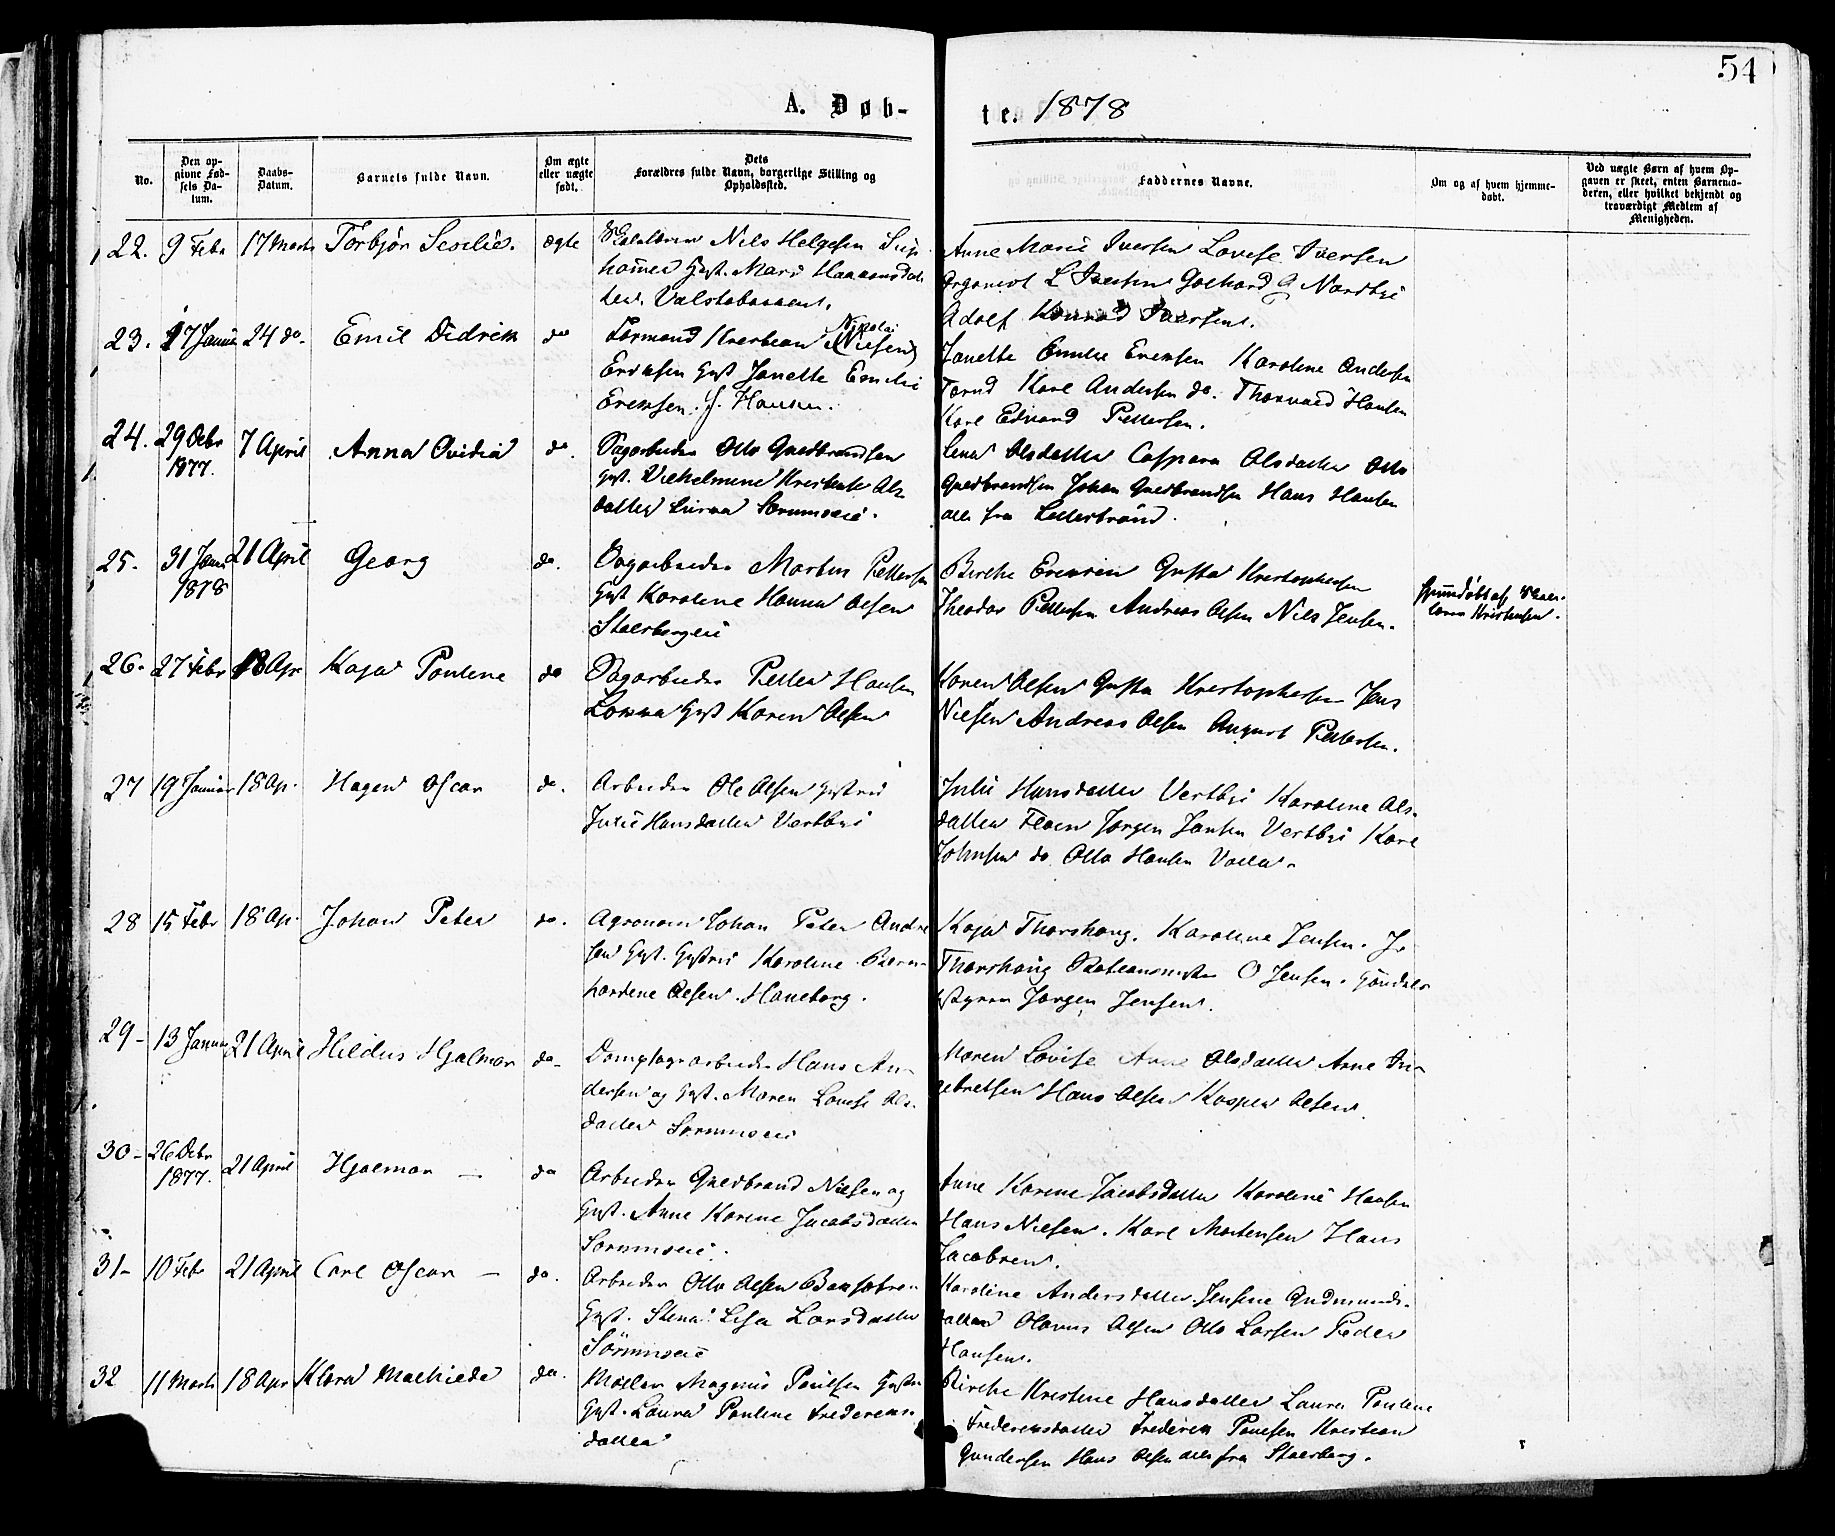 54
A. Døb-
te. 1878
No.
Den op-
givne Fød-
sels Da-
tum.
Daabs-
Datum.
Barnets fulde Navn.
Om ægte
eller uægte
født.
Dets
Forældres fulde Navn, borgerlige Stilling og
Opholdssted.
Faddernes Navne.
Om og af hvem hjemme-
døbt.
Ved uægte Børn af hvem Op-
gaven er skeet, enten Barnemo-
deren, eller hvilket bekjendt og
troværdigt Medlem af
Menigheden.
22. 9 Febr 17 Marts Torbjør ægte
Nils Helgesen
Gust. Mari
Anne Marie Iversen Lovise Iversen
Organist L Iversen Gothard G Nordbye
Adolf Konrad Iversen.
23. 17 Januar 24 do. Emil Didrik do
Formand Kristian Nikolai Nielsen
Eriksen Gust Janette Emilie
Eriksen. f. Hansen.
Janette Emilie Eriksen Karoline Andersen
Karl Andersen do. Thorvald Hansen
Karl Edvard Pettersen.
24. 29 Octbr 1877. 7 April Anna Ovidia do.
Sagarbeider Otto Guldbrandsen
Gust. Vilhelmine Ols
datter Sørumseie.
Lina Olsdatter Caspara Olsdatter Otto
Guldbrandsen Johan Guldbrandsen Hans Hansen
alle fra Lillestrand.
25. 31 Janu 1878 21 April Georg do.
Sagarbeider Martin Pettersen
Gust Karoline Hanna Olsen
Stalsbergeie
Birthe Eriksen Gusta Kristophersen
Theodor Pettersen Andreas Olsen Nils Jensen.
hjemdøbt af Skole-
lærer Kristensen.
26. 27 Febr 18 Apr Kaja Pouline do
Sagarbeider Petter Hansen
Gust Karen Olsen
Karen Olsen Gusta Kristophersen Jens
Nielsen Andreas Olsen August Pettersen.
27 19 Januar 18 Ap. Hagen Oscar do.
Arbeider Ole Olsen Gustru
Julie Hansdatter Vestbyi
Julie Hansdatter Vestbyi Karoline Ols-
datter Jørgen Jansen Vestbyi Karl
Johnsen do Otto Hansen
28 15 Febr 18 Ap. Johan Peter do.
Agronom Johan Peter Andre
sen Gust. Gustru Karoline Bern
hardine Olsen. Haneborg.
Kaja Thorshaug. Karoline Jensen. Jr
Thorshaug O Jensen.
Jørgen Jensen.
29- 13 Januar 21 April Hildus Hjalmar do-
Dampsagarbeider Hans An-
dersen og Gust. Maren Lovise Ols-
datter Sørumseie
Maren Lovise Olsdatter Anne In-
gebretsen Hans Olsen Kasper Olsen.
30- 26 Debr 1877. 21 April Hjalmar - do
Arbeider Guldbrand Nielsen og
Gust. Anne Karine Jacobsdatter
Sørumseie.
Anne Karine Jacobsdatter Karoline Hansen
Hans Nielsen. Karl Mortensen Hans
Jacobsen.
31- 10 Febr 21 April Carl Oscar - do.
Arbeider Otto Olsen
Gust. Stina Lisa Larsdatter
Sørumseie
Karoline Andersdatter. Jensine Gudmunds-
datter Olavus Olsen Otto Larsen Peder
Hansen.
32 11 Marts 18 Apr Klara Mathilde do.
Møller Magnus Poulsen
Gust. Laura Pouline Frederiks
datter
Birthe Kristine Hansdatter Laura Pouline
Frederiksdatter Frederik Poulsen Kristian
Gundersen Hans Olsen alle fra Stalsberg.